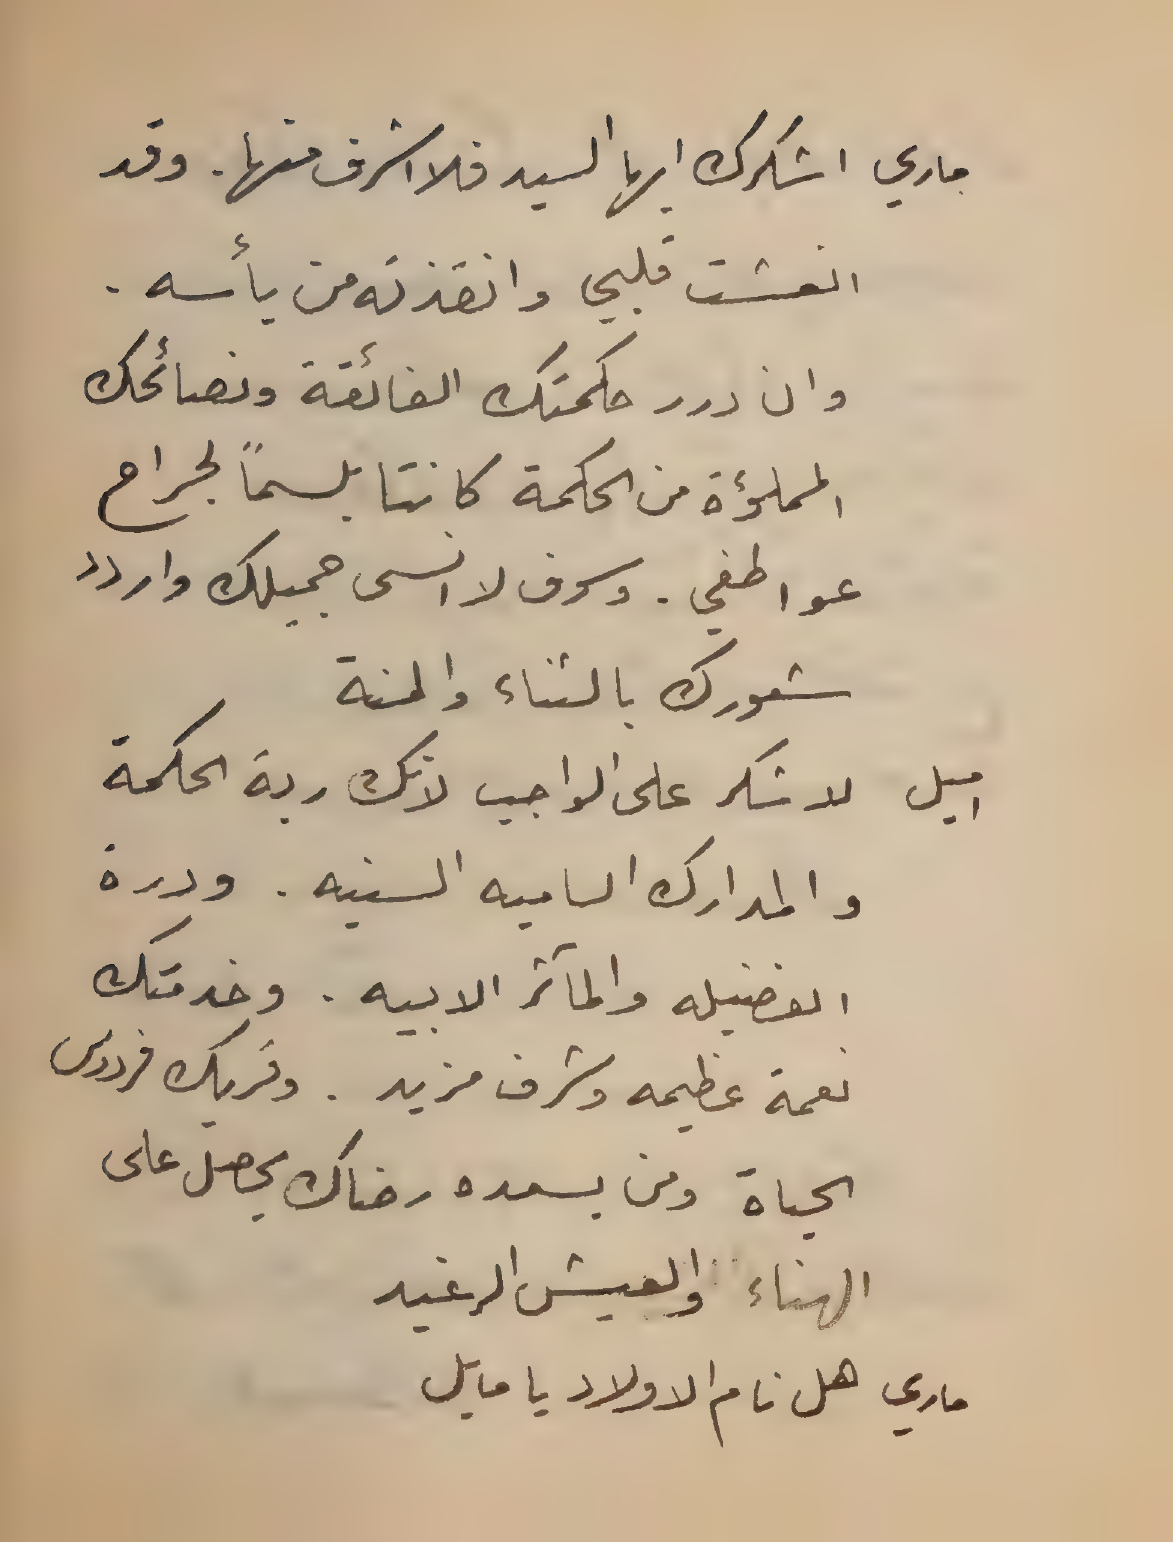 ماري اشكرك ايها السيد فلا اشرف منها. وقد
انعشت قلبي وانقذته من يأسه.
وان درر حكمتك الفائقة ونصائحك
المملؤة من الحكمة كانتا بلسماً لجراح
عواطفي. وسوف لا انسى جميلك واردد
شعورك بالثناء والمنة
اميل لا شكر على الواجب لانك ربة الحكمة
والمدارك الساميه السنيه. ودرة
الفضيله والمآثر الابيه. وخدمتك
نعمة عظيمه وشرف مزيد. وقربك فردوس
الحياة ومن يسعده رضاك يحصل على
الهناء والعيش الرغيد
ماري هل نام الاولاد يا مايل